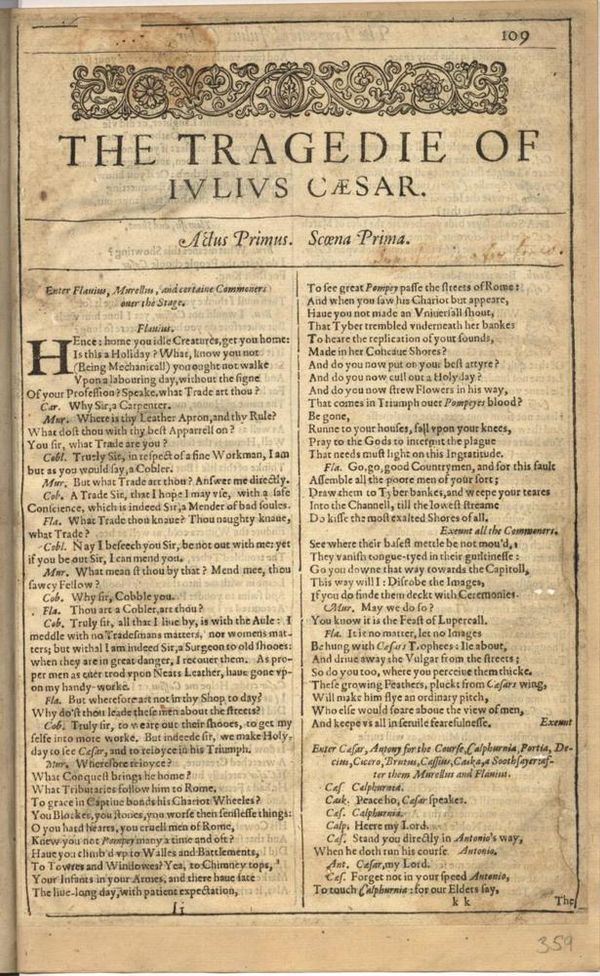 109
THE TRAGEDIE OF
IVLIVS CÆSAR.
Actus Primus. Scœna Prima.
Enter Flauius, Murellus, and certaine Commoners
ouer the Stage.
Flauius.
HEnce: home you idle Creatures, get you home:
Is this a Holiday? What, know you not
(Being Mechanicall) you ought not walke
Vpon a labouring day, without the signe
Of your Profession? Speake, what Trade art thou?
Car. Why Sir, a Carpenter.
Mur. Where is thy Leather Apron, and thy Rule?
What dost thou with thy best Apparrell on?
You sir, what Trade are you?
Cobl. Truely Sir, in respect of a fine Workman, I am
but as you would say, a Cobler.
Mur. But what Trade art thou? Answer me directly.
Cob. A Trade Sir, that I hope I may vse, with a safe
Conscience, which is indeed Sir, a Mender of bad soules.
Fla. What Trade thou knaue? Thou naughty knaue,
what Trade?
Cobl. Nay I beseech you Sir, be not out with me: yet
if you be out Sir, I can mend you.
Mur. What mean'st thou by that? Mend mee, thou
sawcy Fellow?
Cob. Why sir, Cobble you.
Fla. Thou art a Cobler, art thou?
Cob. Truly sir, all that I liue by, is with the Aule: I
meddle with no Tradesmans matters, nor womens mat-
ters; but withal I am indeed Sir, a Surgeon to old shooes:
when they are in great danger, I recouer them. As pro-
per men as euer trod vpon Neats Leather, haue gone vp-
on my handy-worke.
Fla. But wherefore art not in thy Shop to day?
Why do'st thou leade these men about the streets?
Cob. Truly sir, to weare out their shooes, to get my
selfe into more worke. But indeede sir, we make Holy-
day to see Cæsar, and to reioyce in his Triumph.
Mur. Wherefore reioyce?
What Conquest brings he home?
What Tributaries follow him to Rome,
To grace in Captiue bonds his Chariot Wheeles?
You Blockes, you stones, you worse then senslesse things:
O you hard hearts, you cruell men of Rome,
Knew you not Pompey many a time and oft?
Haue you climb'd vp to Walles and Battlements,
To Towres and Windowes? Yea, to Chimney tops,
Your Infants in your Armes, and there haue sate
The liue-long day, with patient expectation,
Ii
To see great Pompey passe the streets of Rome:
And when you saw his Chariot but appeare,
Haue you not made an Vniuersall shout,
That Tyber trembled vnderneath her bankes
To heare the replication of your sounds,
Made in her Concaue Shores?
And do you now put on your best attyre?
And do you now cull out a Holyday?
And do you now strew Flowers in his way,
That comes in Triumph ouer Pompeyes blood?
Be gone,
Runne to your houses, fall vpon your knees,
Pray to the Gods to intermit the plague
That needs must light on this Ingratitude.
Fla. Go, go, good Countrymen, and for this fault
Assemble all the poore men of your sort;
Draw them to Tyber bankes, and weepe your teares
Into the Channell, till the lowest streame
Do kisse the most exalted Shores of all.
Exeunt all the Commoners.
See where their basest mettle be not mou'd,
They vanish tongue-tyed in their guiltinesse:
Go you downe that way towards the Capitoll,
This way will I: Disrobe the Images,
If you do finde them deckt with Ceremonies.
Mur. May we do so?
You know it is the Feast of Lupercall.
Fla. It is no matter, let no Images
Be hung with Cæsars Trophees: Ile about,
And driue away the Vulgar from the streets;
So do you too, where you perceiue them thicke.
These growing Feathers, pluckt from Cæsars wing,
Will make him flye an ordinary pitch,
Who else would soare aboue the view of men,
And keepe vs all in seruile fearefulnesse. Exeunt
Enter Cæsar, Antony for the Course, Calphurnia, Portia, De-
cius, Cicero, Brutus, Cassius, Caska, a Soothsayer: af-
ter them Murellus and Flauius.
Cæs. Calphurnia.
Cask. Peace ho, Cæsar speakes.
Cæs. Calphurnia.
Calp. Heere my Lord.
Cæs. Stand you directly in Antonio's way,
When he doth run his course. Antonio.
Ant. Cæsar, my Lord.
Cæs. Forget not in your speed Antonio,
To touch Calphurnia: for our Elders say,
k k The
359